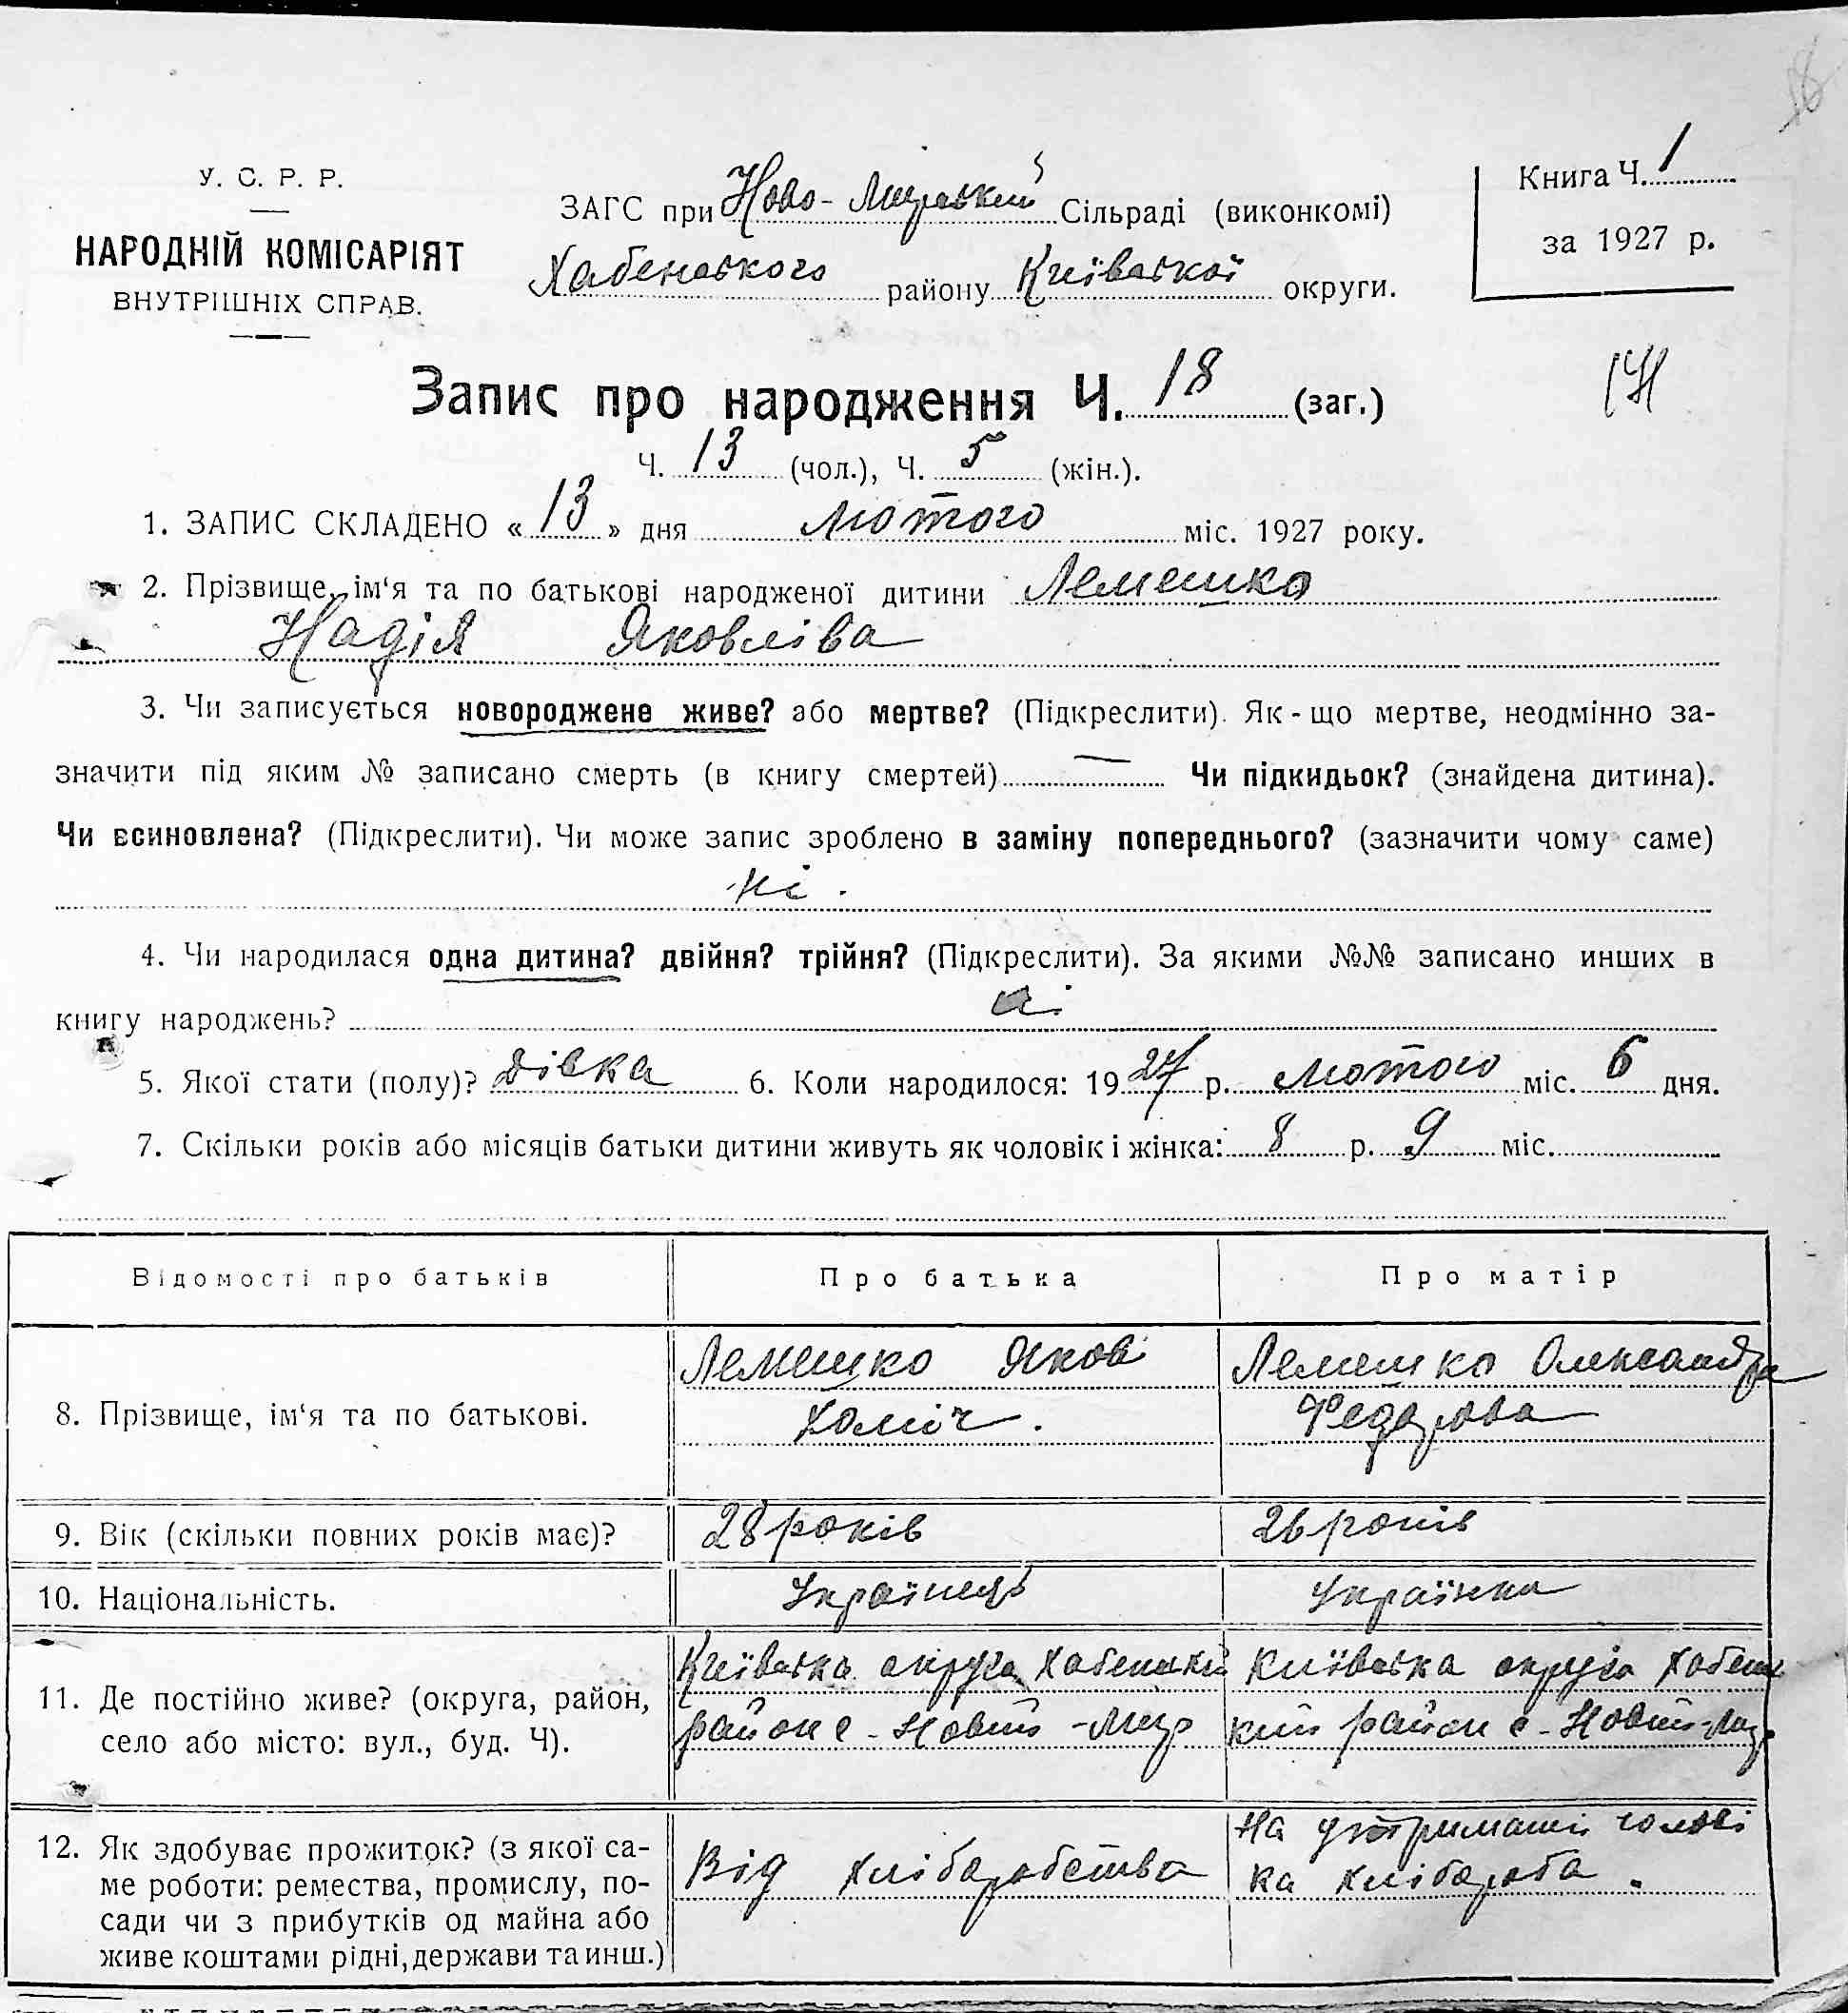 У. С. Р. Р.
НАРОДНІЙ КОМІСАРІЯТ
ВНУТРІШНІХ СПРАВ.
ЗАГС при Ново-Мирській Сільраді (виконкомі)
Хабенського району Київської округи.
Книга Ч. 1
за 1927 р.
Запис про народження Ч. 18 (заг.)
Ч. 13 (чол.), Ч. 5 (жін.).
1. ЗАПИС СКЛАДЕНО « 13 » дня лютого міс. 1927 року.
2. Прізвище, ім‘я та по батькові народженої дитини Лемешко
Надія Яковліва
3. Чи записується новороджене живе? або мертве? (Підкреслити). Як-що мертве, неодмінно за-
значити під яким № записано смерть (в книгу смертей) — Чи підкидьок? (знайдена дитина).
Чи всиновлена? (Підкреслити). Чи може запис зроблено в заміну попереднього? (зазначити чому саме)
ні.
4. Чи народилася одна дитина? двійня? трійня? (Підкреслити). За якими №№ записано инших в
книгу народжень?
5. Якої стати (полу)? дівка 6. Коли народилося: 1927 р. лютого міс. 6 дня.
7. Скільки років або місяців батьки дитини живуть як чоловік і жінка: 8 р. 9 міс.
Відомості про батьків Про батька Про матір
8. Прізвище, ім‘я та по батькові.
Лемешко Яков
Хоміч.
Лемешко Олександра
Федорова
9. Вік (скільки повних років має)? 28 років 26 років
10. Національність. Українець Українка
11. Де постійно живе? (округа, район,
село або місто: вул., буд. Ч).
Київська округа Хабенский
район с-Новий-Мир
Київська округа Хабенс
кий район с-Новий-Мир
12. Як здобуває прожиток? (з якої са-
ме роботи: ремества, промислу, по-
сади чи з прибутків од майна або
живе коштами рідні, держави та инш.)
Від хліборобства
На утриманні чолові
ка хлібороба.